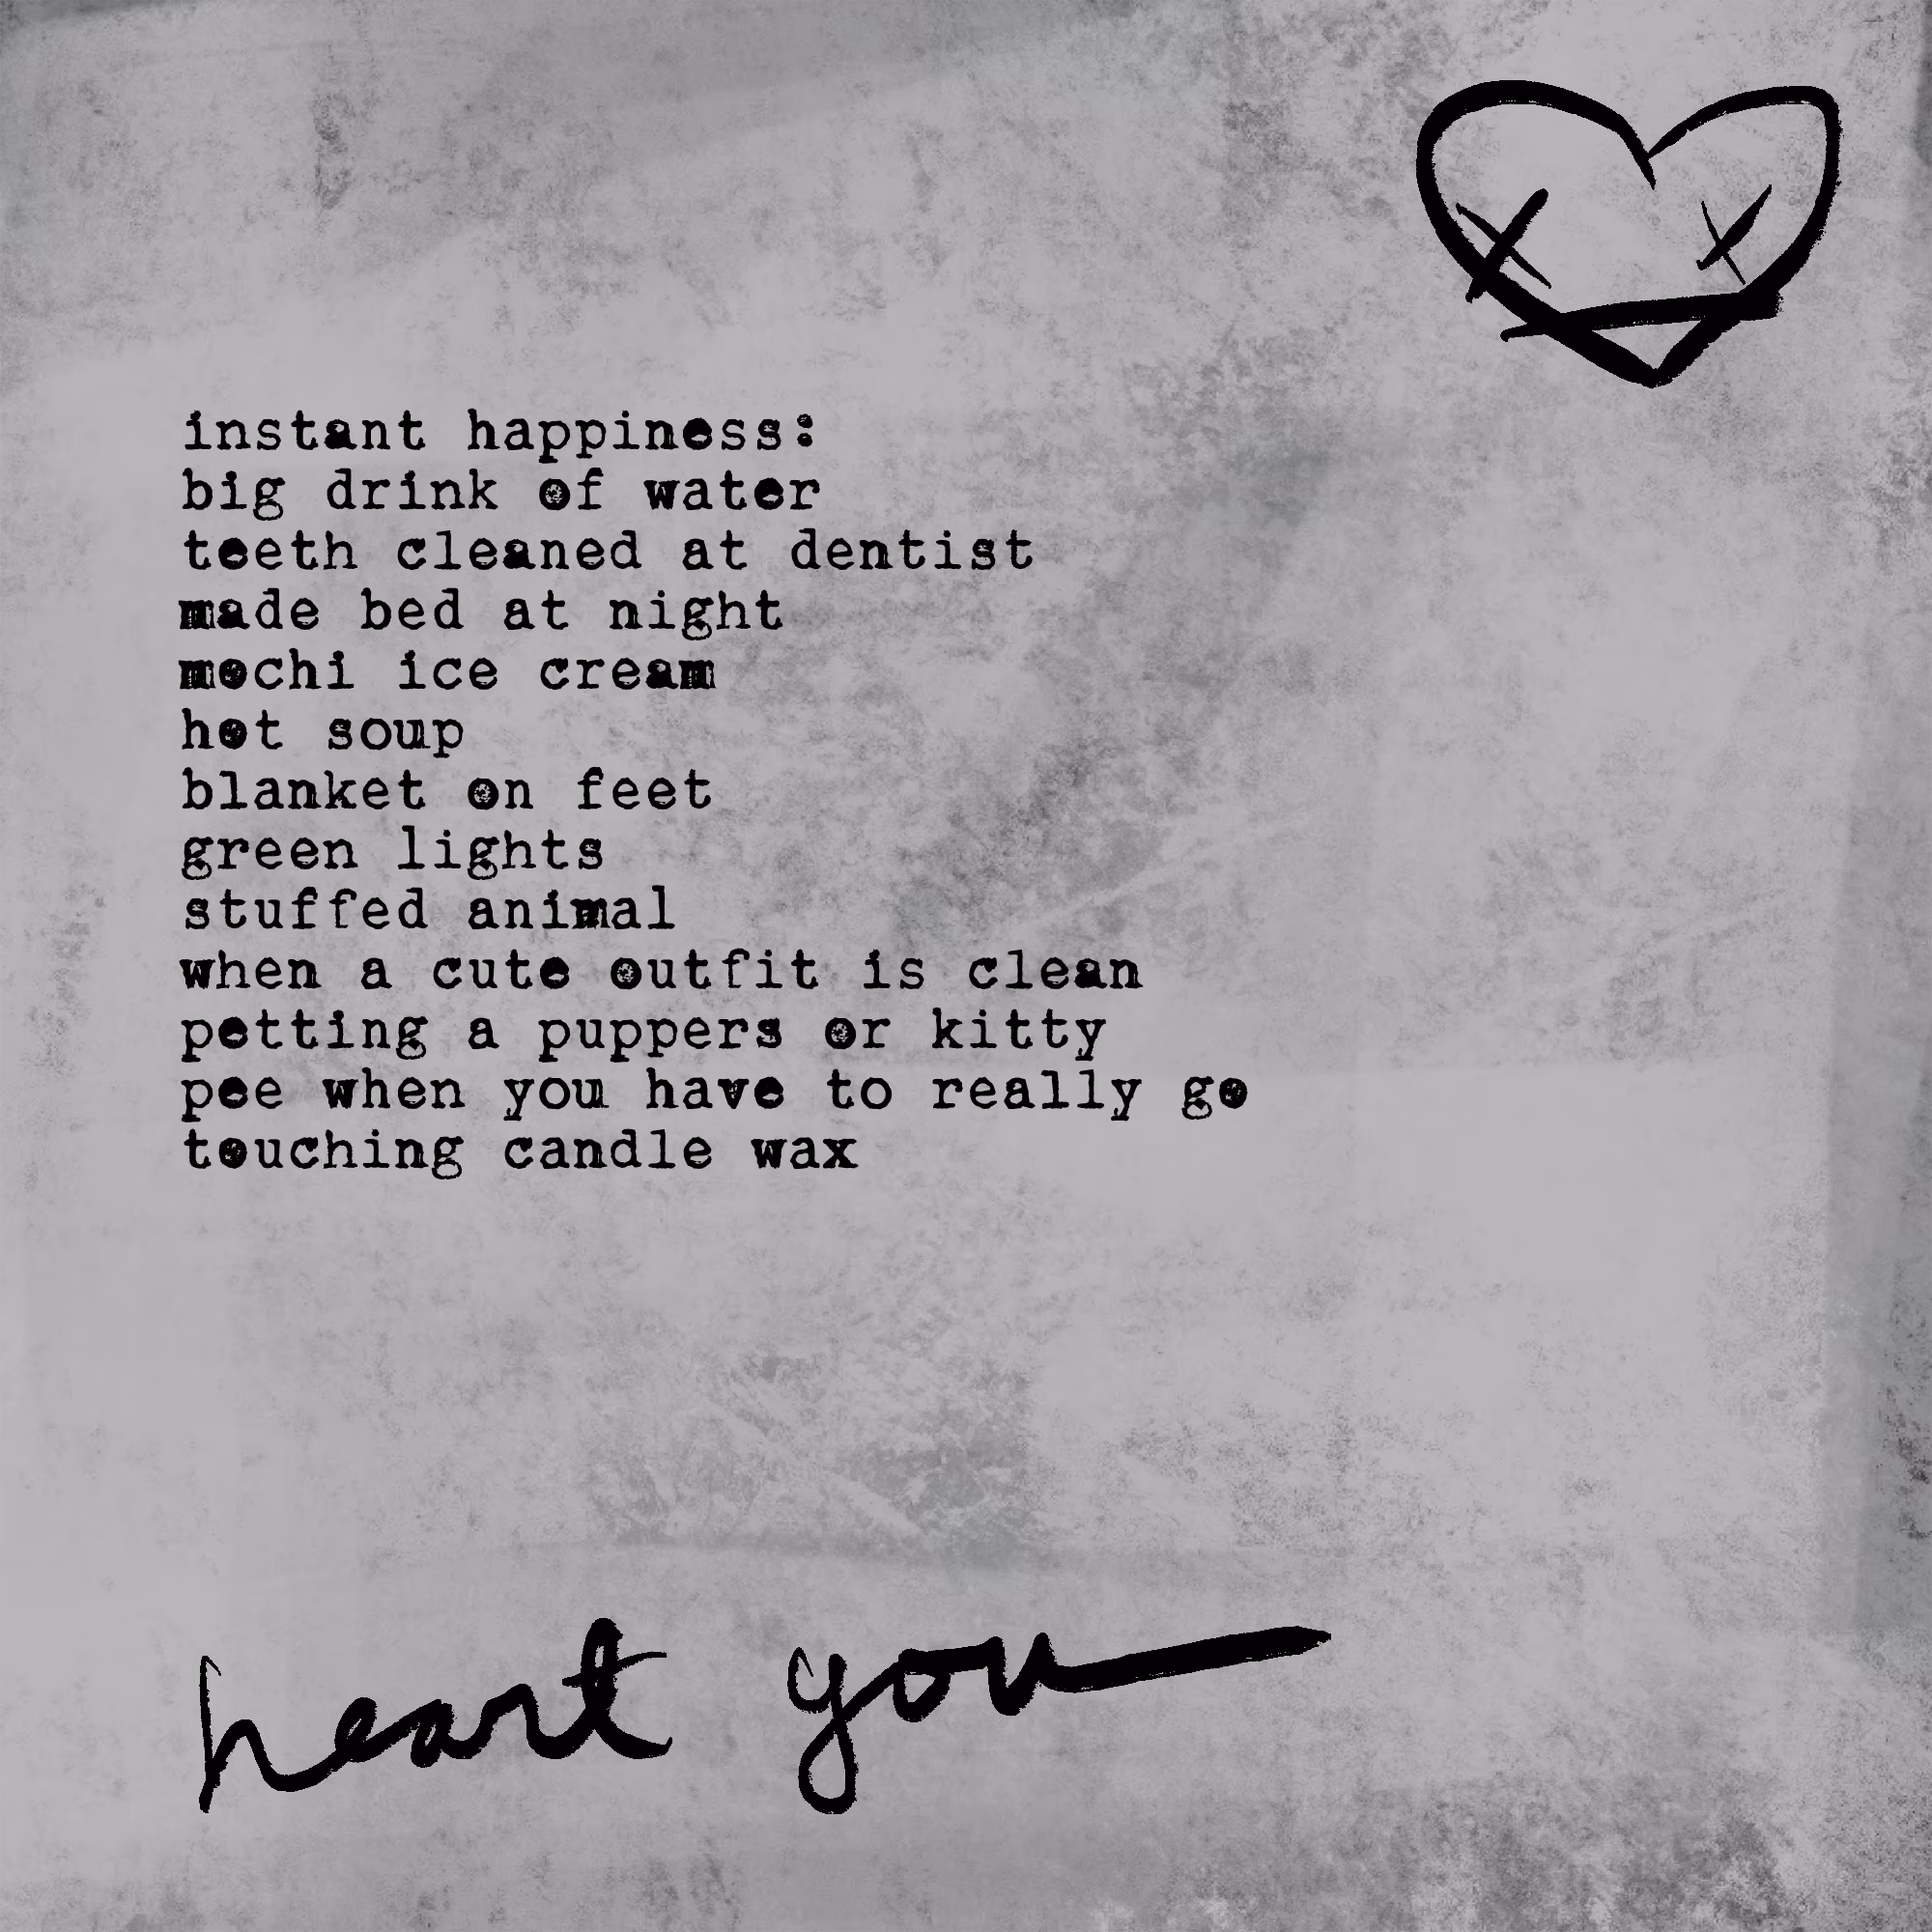 instant happiness:
big drink of water
teeth cleaned at dentist
made bed at night
mochi ice cream
hot soup
blanket on feet
green lights
stuffed animal
when a cute outfit is clean
petting a puppers or kitty
pee when you have to really go
touching candle wax
heart you